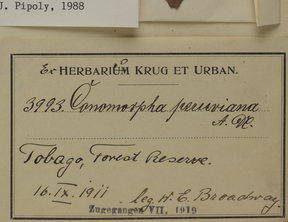 J. Pipoly, 1988
Ex HERBARIUM KRUG ET URBAN.
3993. Conomorpha peruviana
A. DC.
Tobago, Forest Reserve.
16. IX. 1911 leg. W. E. Broadway.
Zugegangen VII. 1919